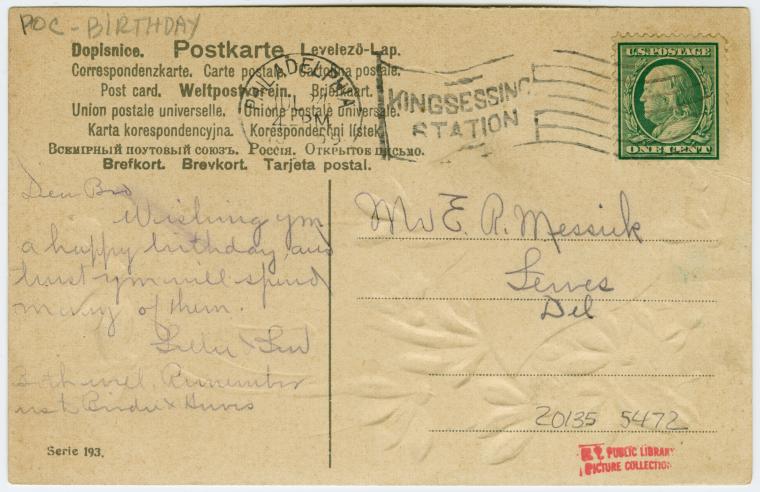 POC - BIRTHDAY
Dopisnice. Postkarte. Levelező-Lap.
Correspondenzkarte. Carte postale. Cartolina postale.
Post card. Weltpostverein. Briefkaart.
Union postale universelle. Unione postale universale.
Karta korespondencyjna. Korespondenční lístek.
Всемірный почтовый союзъ. Россія. Открытое письмо.
Brefkort. Brevkort. Tarjeta postal.
PHILADELPHIA
4 - PM
KINGSESSING
STATION
U.S. POSTAGE
ONE CENT
Dear Bro
Wishing you
a happy birthday, and
trust you will spend
many of them.
Both well. Remember
Mr E. R. Messick
Lewes
Del
20135 5472
Serie 193.
N.Y. PUBLIC LIBRARY
PICTURE COLLECTION